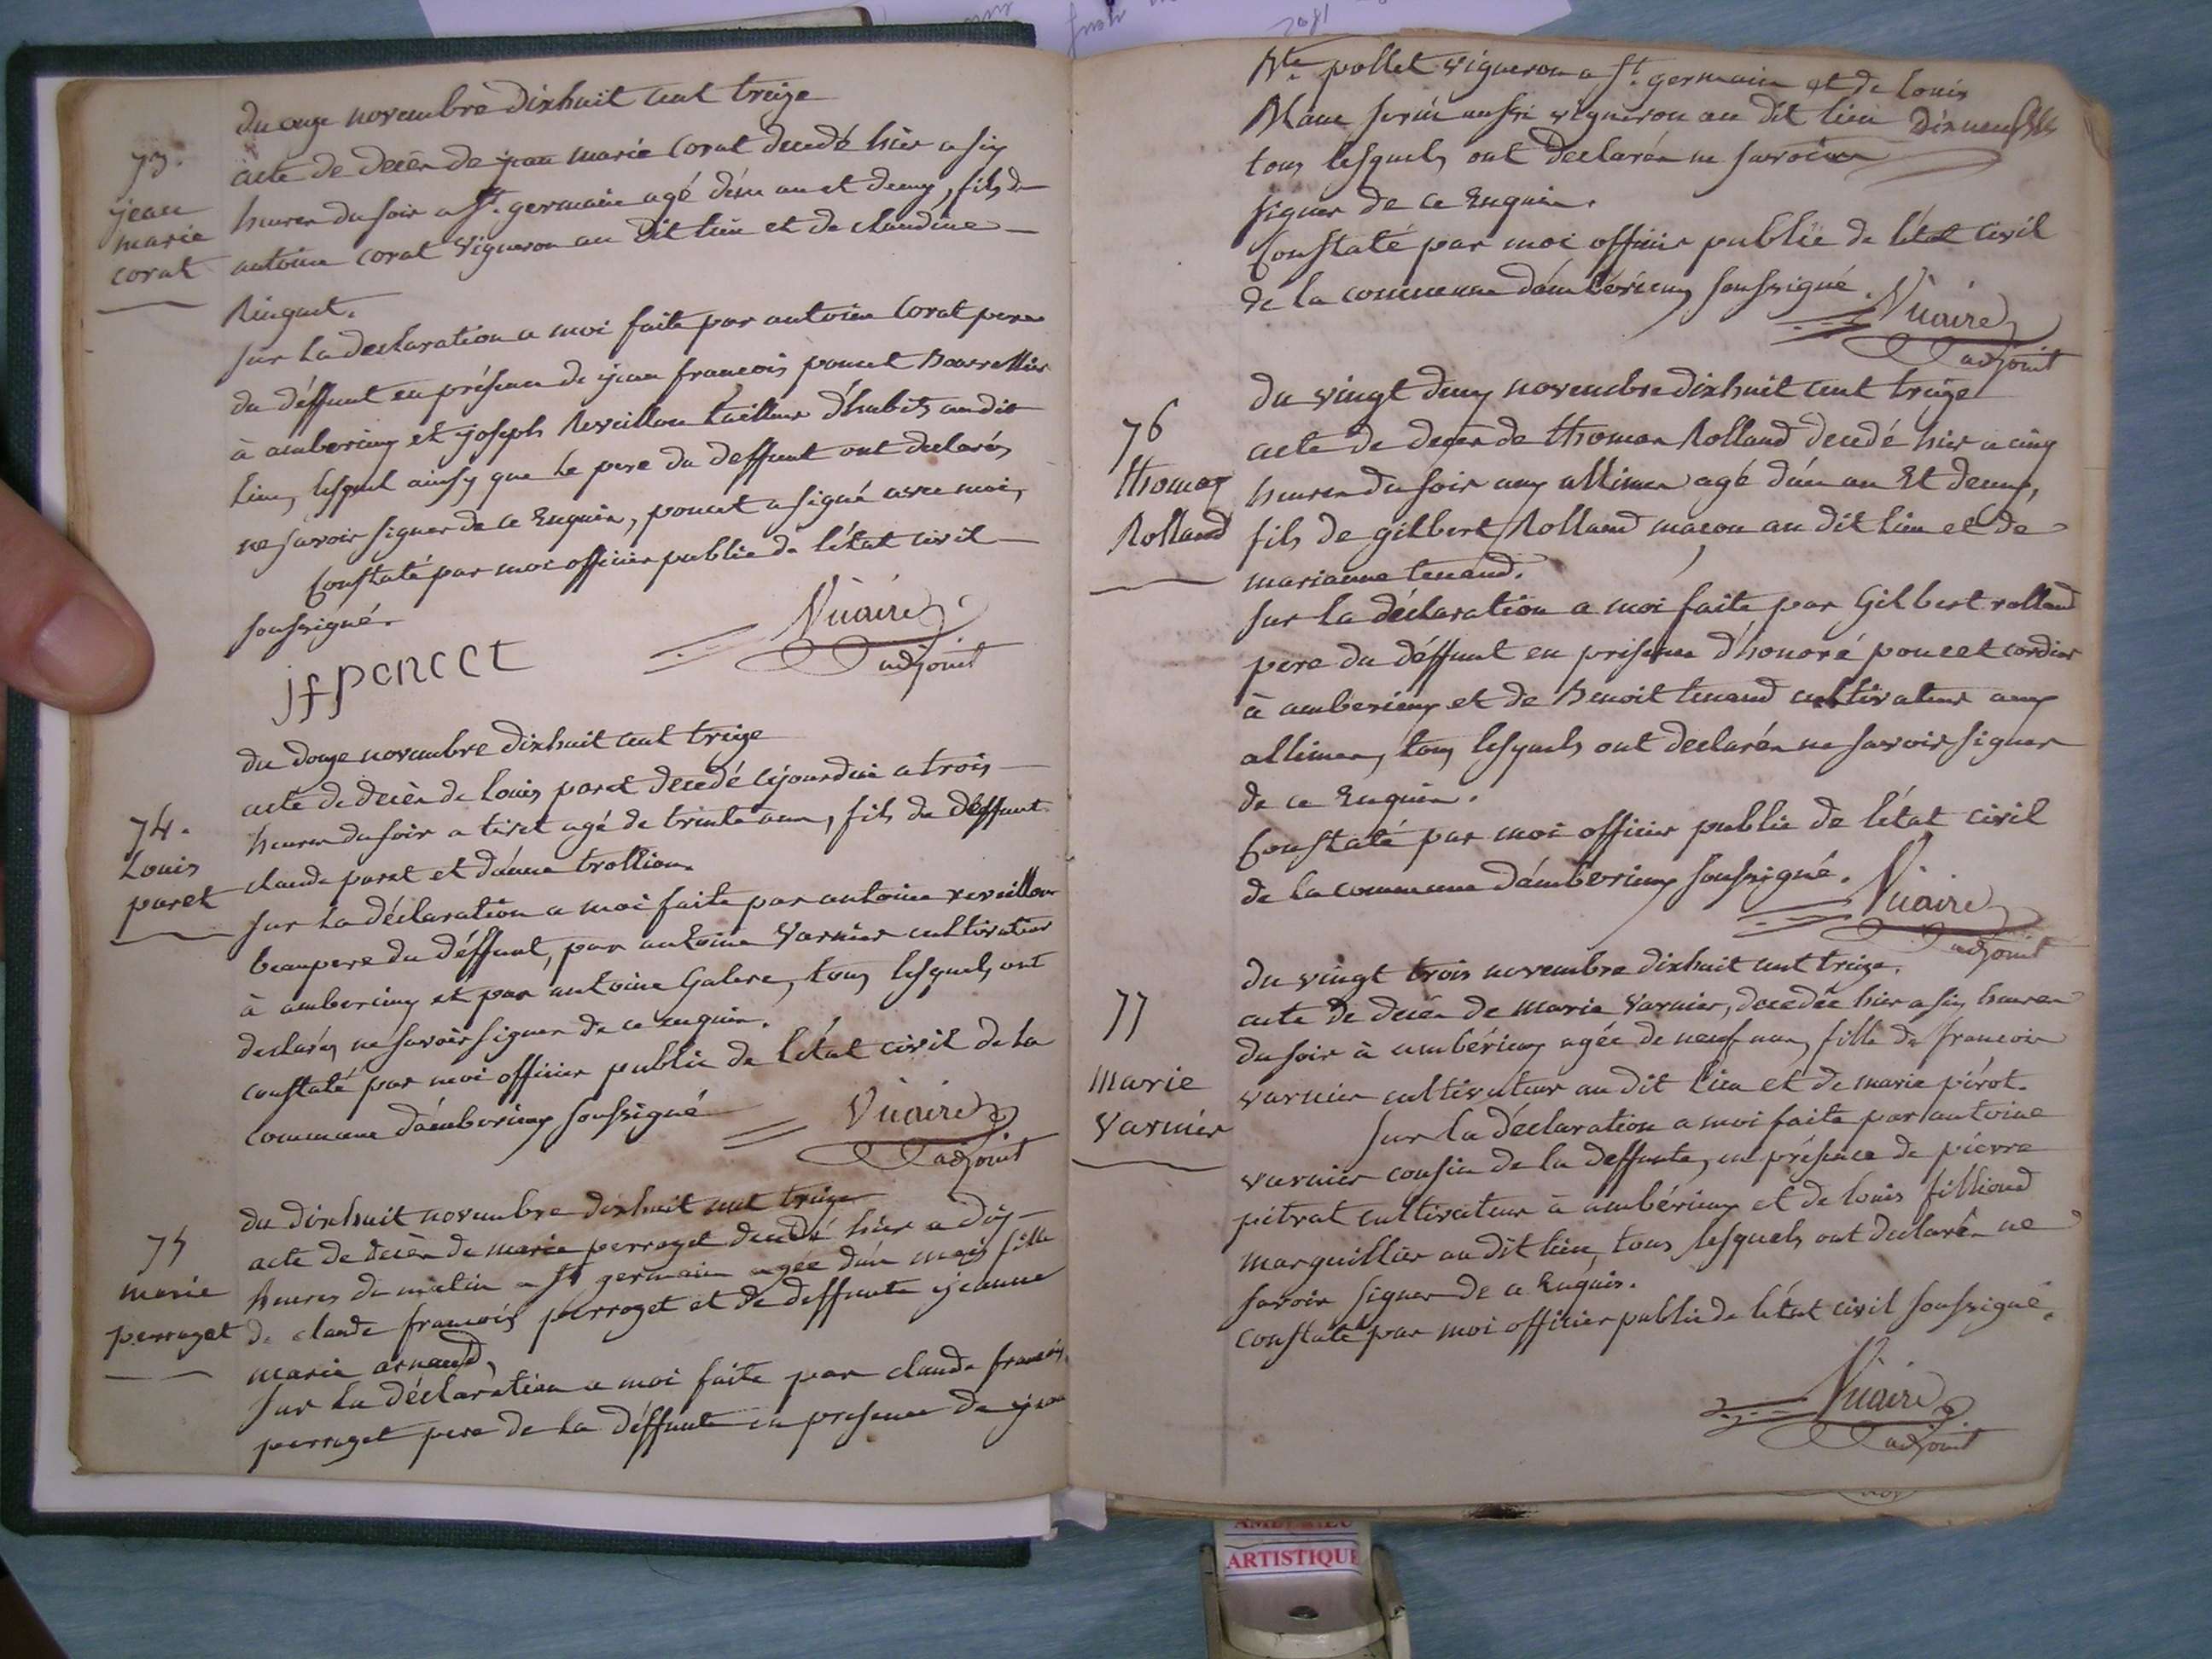 73.
jean
marie
corat
du onze novembre dixhuit cent treize
acte de decès de jean marie Corat decedé hier a six
heures du soir a St. germain agé d'un an et demy, fils de
antoine corat vigneron au dit lieu et de claudine
Ringuet.
sur la declaration a moi faite par antoine Corat pere
du déffunt en présence de jean françois poncet bourrellier
à amberieux et joseph Reveillon tailleur d'habits au dit
lieu, lesquel ainsy que le pere du deffunt ont declarés
ne savoir signer de ce Enquis, poncet a signé avec moi,
Constaté par moi officier public de l'état civil
soussigné.
jfponcet
Vicaire
adjoint
74.
Louis
paret
du douze novembre dixhuit cent treize
acte de decès de Louis paret decedé cejourdui a trois
heures du soir a tiret agé de trente ans, fils de deffunt
claude paret et d'anne trollion.
sur la déclaration a moi faite par antoine reveillon
beaupere du déffunt, par antoine Varnier cultivateur
à amberieux et par antoine Galere, tous lesquels ont
declarés ne savoir signer de ce enquis.
constaté par moi officier public de l'état civil de la
commune d'amberieux soussigné
Vicaire
adjoint
75
marie
perraget
du dixhuit novembre dixhuit cent treize
acte de decès de marie perraget decedé hier a dix
heures du matin a St germain agée d'un mois fille
de claude françois perraget et de deffunte jeanne
marie arnaud,
sur la déclaration a moi faite par claude françois
perraget pere de la déffunte en presence de jean
Bte. pollet vigneron a St. germain et de louis
Blanc serin aussi vigneron au dit lieu
tous lesquels ont declarés ne savoir
signer de ce Enquis.
Constaté par moi officier public de l'état civil
de la commune d'ambérieux soussigné.
Vicaire
adjoint
76
thomas
Rolland
du vingt deux novembre dixhuit cent treize
acte de decès de thomas Rolland decedé hier a cinq
heures du soir aux allimes agé d'un an Et demy,
fils de gilbert Rolland maçon au dit lieu et de
marianne tenand.
sur la déclaration a moi faite par Gilbert rolland
pere du déffunt en présence d'honoré poncet cordier
à amberieux et de Benoit tenand cultivateur aux
allimes, tous lesquels ont declarés ne savoir signer
de ce Enquis.
Constaté par moi officier public de l'état civil
de la commune d'amberieux soussigné.
Vicaire
adjoint
77
Marie
Varnier
du vingt trois novembre dixhuit cent treize.
acte de decès de marie Varnier, decedée hier a six heures
du soir à ambérieux agée de neuf ans, fille de françois
varnier cultivateur au dit lieu et de marie pérot.
sur la déclaration a moi faite par antoine
varnier cousin de la deffunte, en présence de pierre
pitrat cultivateur à ambérieux et de louis filliond
marguillier au dit lieu, tous lesquels ont declarés ne
savoir signer de ce Enquis.
constaté par moi officier public de l'état civil soussigné.
Vicaire
adjoint
ARTISTIQUE